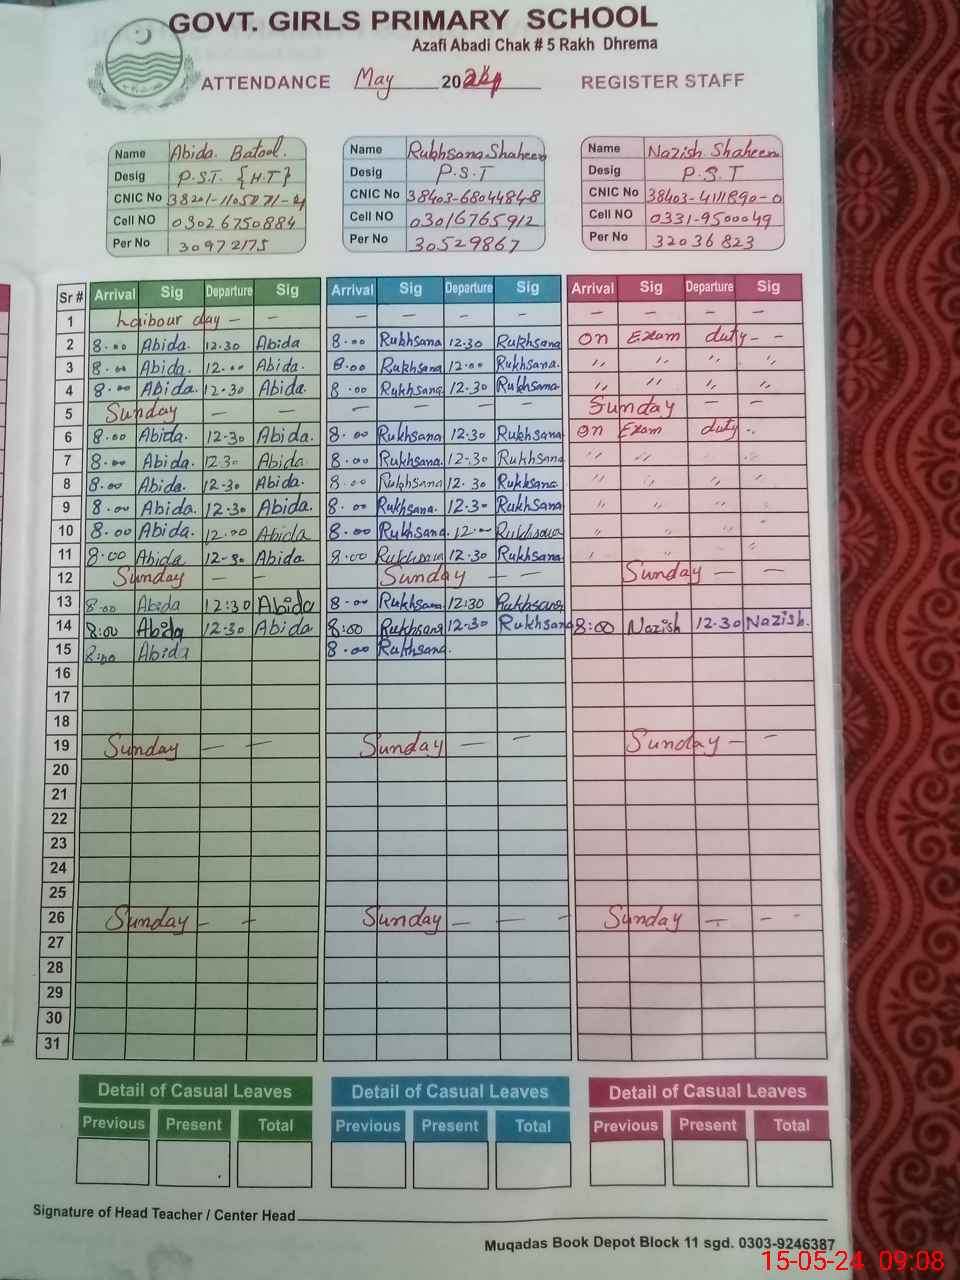 GOVT. GIRLS PRIMARY SCHOOL
Azafi Abadi Chak # 5 Rakh Dhrema
ATTENDANCE May 2024 REGISTER STAFF
Name Abida. Batool. Name Rukhsana Shaheen Name Nazish Shaheen
Desig P.S.T. {H.T} Desig P.S.T Desig P.S.T
CNIC No CNIC No 38403-6804484-8 CNIC No 38403-4111890-0
Cell NO 03026750884 Cell NO 03016765912 Cell NO 0331-9500049
Per No 30972175 Per No 30529867 Per No 32036823
Sr # Arrival Sig Departure Sig Arrival Sig Departure Sig Arrival Sig Departure Sig
1 Laibour day - - - - - - - - - -
2 8.00 Abida. 12.30 Abida 8.00 Rukhsana 12.30 Rukhsana on Exam duty - -
3 8.00 Abida. 12.00 Abida. 8.00 Rukhsana 12.00 Rukhsana. " " " "
4 8.00 Abida. 12.30 Abida. 8.00 Rukhsana 12.30 Rukhsana " " " "
5 Sunday - - - - - - Sunday - -
6 8.00 Abida. 12.30 Abida. 8.00 Rukhsana 12.30 Rukhsana on Exam duty ..
7 8.00 Abida. 12.30 Abida. 8.00 Rukhsana. 12.30 Rukhsana " " " "
8 8.00 Abida. 12.30 Abida. 8.00 Rukhsana 12.30 Rukhsana. " " " "
9 8.00 Abida. 12.30 Abida. 8.00 Rukhsana. 12.30 Rukhsana. " " " "
10 8.00 Abida. 12.00 Abida 8.00 Rukhsana. 12.00 Rukhsana " " " "
11 8.00 Abida 12.30 Abida 8.00 Rukhsana 12.30 Rukhsana " " " "
12 Sunday - - Sunday - - Sunday - -
13 8.00 Abida 12:30 Abida 8.00 Rukhsana 12:30 Rukhsana
14 8:00 Abida 12.30 Abida 8:00 Rukhsana 12.30 Rukhsana 8:00 Nazish 12.30 Nazish.
15 8:00 Abida 8.00 Rukhsana.
16
17
18
19 Sunday - - Sunday - - Sunday - -
20
21
22
23
24
25
26 Sunday - - Sunday - - - Sunday - - -
27
28
29
30
31
Detail of Casual Leaves Detail of Casual Leaves Detail of Casual Leaves
Previous Present Total Previous Present Total Previous Present Total
Signature of Head Teacher / Center Head
Muqadas Book Depot Block 11 sgd. 0303-9246387
15-05-24 09:08